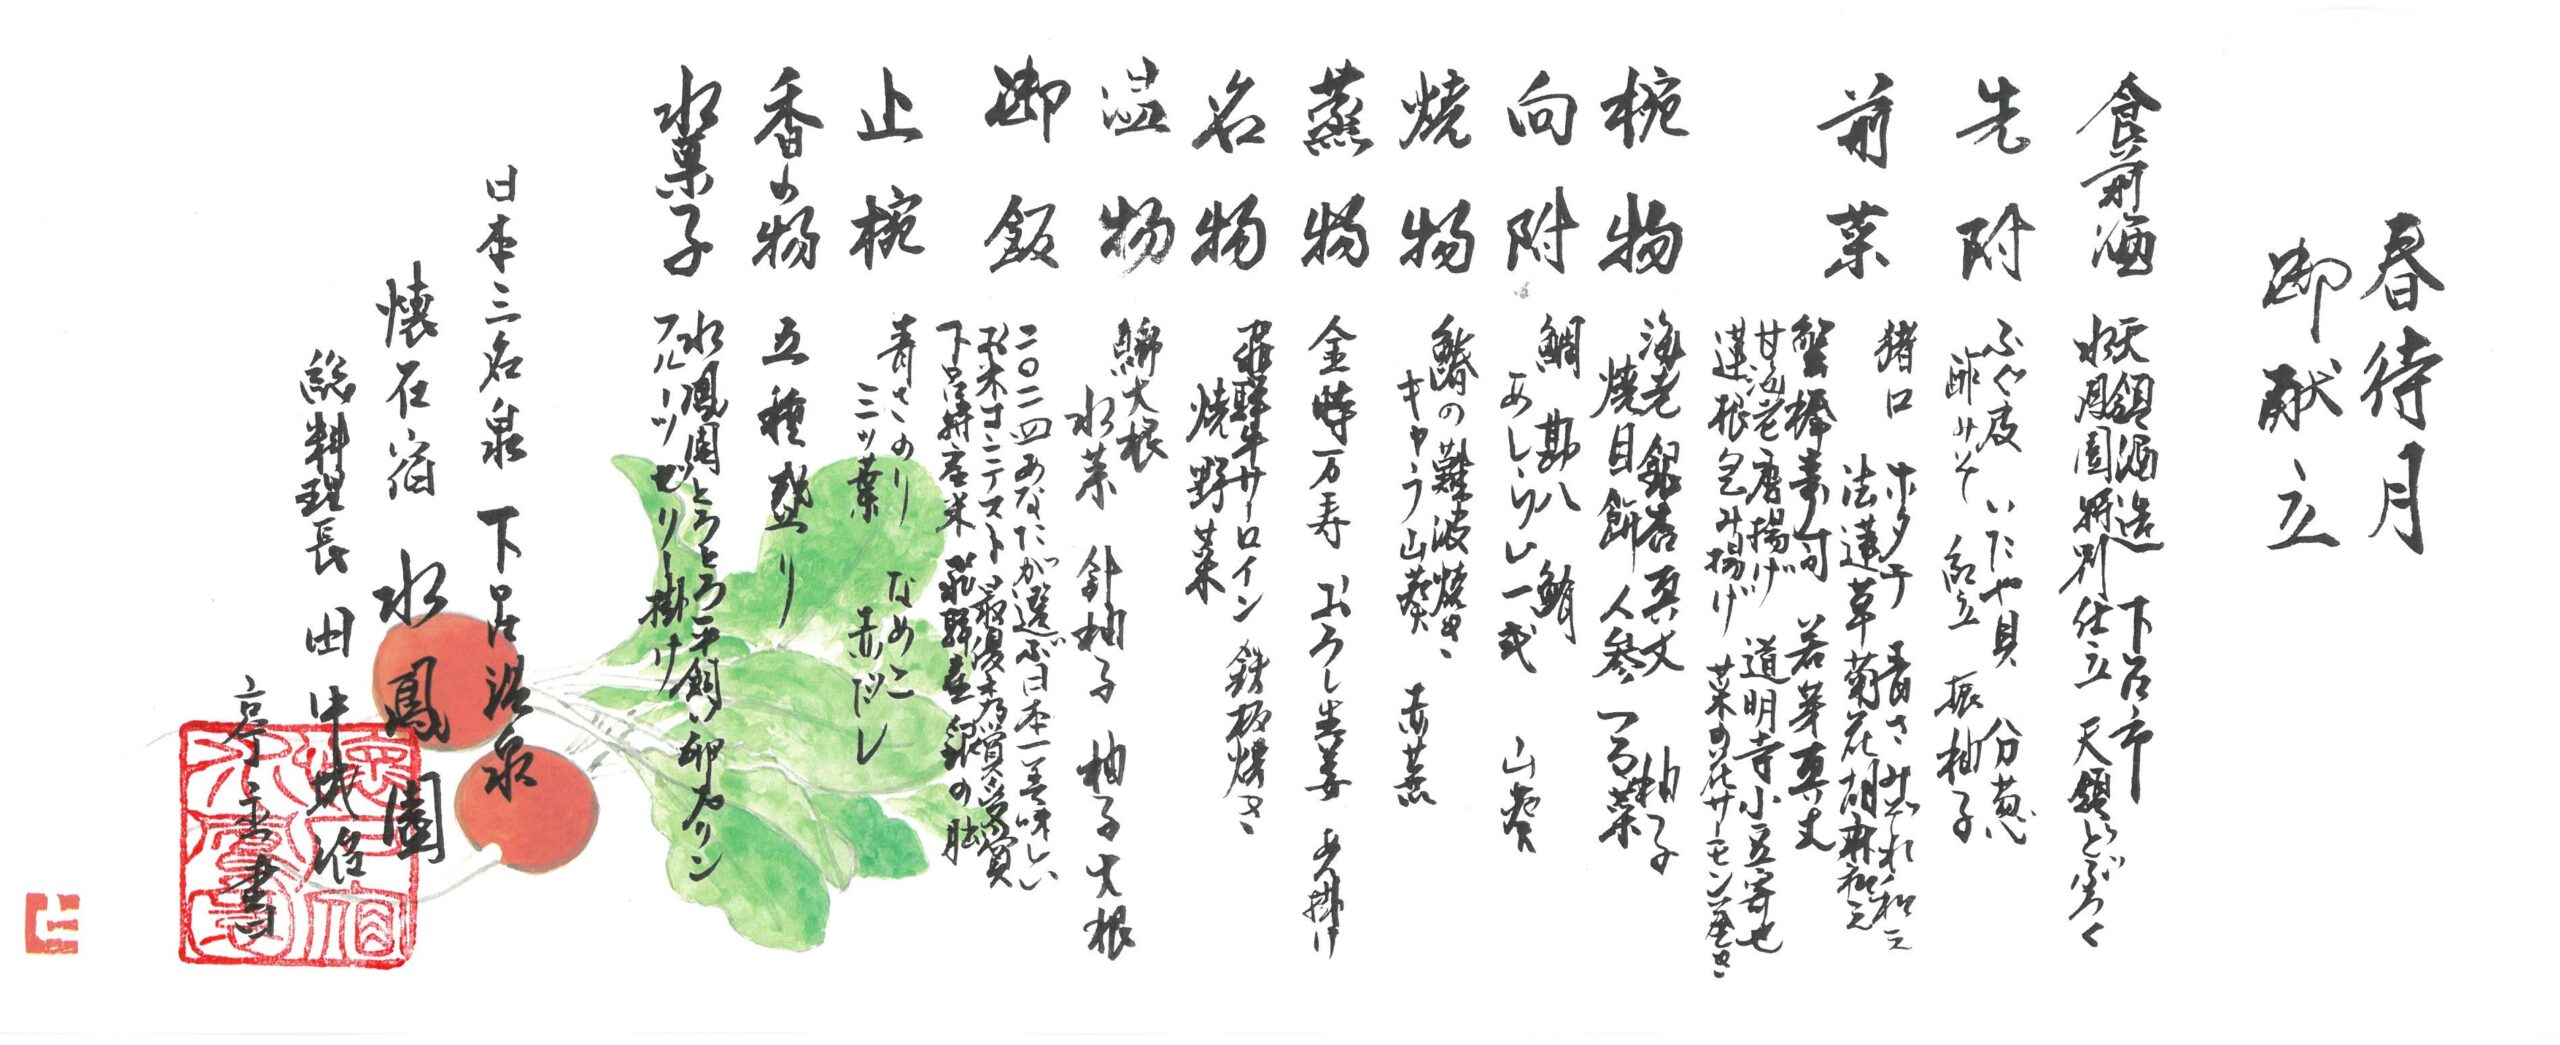 春待月
御献立
食前酒
天領酒造 下呂市
水鳳園特別仕立 天領どぶろく
先附
ふぐ皮 いたや貝 分葱
酢みそ 紅立 振柚子
前菜
猪口 ホタテ 青さみぞれ和え
法蓮草菊花胡麻和え
蟹棒寿し 若芽真丈
甘海老唐揚げ 道明寺小豆寄せ
蓮根包み揚げ 菜の花サーモン巻き
椀物
海老銀杏真丈 柚子
焼目餅 人参 つる菜
向附
鯛 勘八 鮪 山葵
あしらい一式
焼物
鰆の難波焼き 赤蕪
キャラ山葵
蒸物
金時万寿 おろし生姜 あん掛け
名物
飛騨牛サーロイン 鉄板焼き
焼野菜
温物
鰤大根
水菜 針柚子 柚子大根
御飯
二〇二四あなたが選ぶ日本一美味しい
お米コンテスト 最優秀賞受賞
下呂特産米 飛騨産 銀の朏
止椀
青さのり なめこ
三ツ葉 赤だし
香の物
五種盛り
水菓子
水鳳園とろとろ平飼い卵プリン
フルーツゼリー掛け
日本三名泉 下呂温泉
懐石宿 水鳳園
総料理長 田中
亭主書